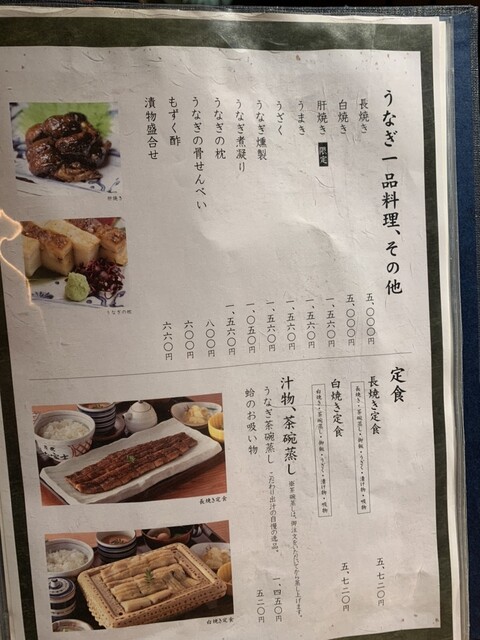 うなぎ一品料理、その他
長焼き 五、〇〇〇円
白焼き 五、〇〇〇円
肝焼き 限定 一、五六〇円
うまき 一、五六〇円
うざく 一、五六〇円
うなぎ燻製 一、五六〇円
うなぎ煮凝り 一、〇五〇円
うなぎの枕 一、五六〇円
うなぎの骨せんべい 八〇〇円
もずく酢 六〇〇円
漬物盛合せ 六六〇円
肝焼き
うなぎの枕
定食
長焼き定食 五、七二〇円
長焼き・茶碗蒸し・御飯・うざく・漬け物・吸物
白焼き定食 五、七二〇円
白焼き・茶碗蒸し・御飯・うざく・漬け物・吸物
汁物、茶碗蒸し ※茶碗蒸しは、御注文をいただいてから蒸し上げます。
うなぎ茶碗蒸し・こだわり出汁の自慢の逸品。 一、四五〇円
蛤のお吸い物 五二〇円
長焼き定食
白焼き定食